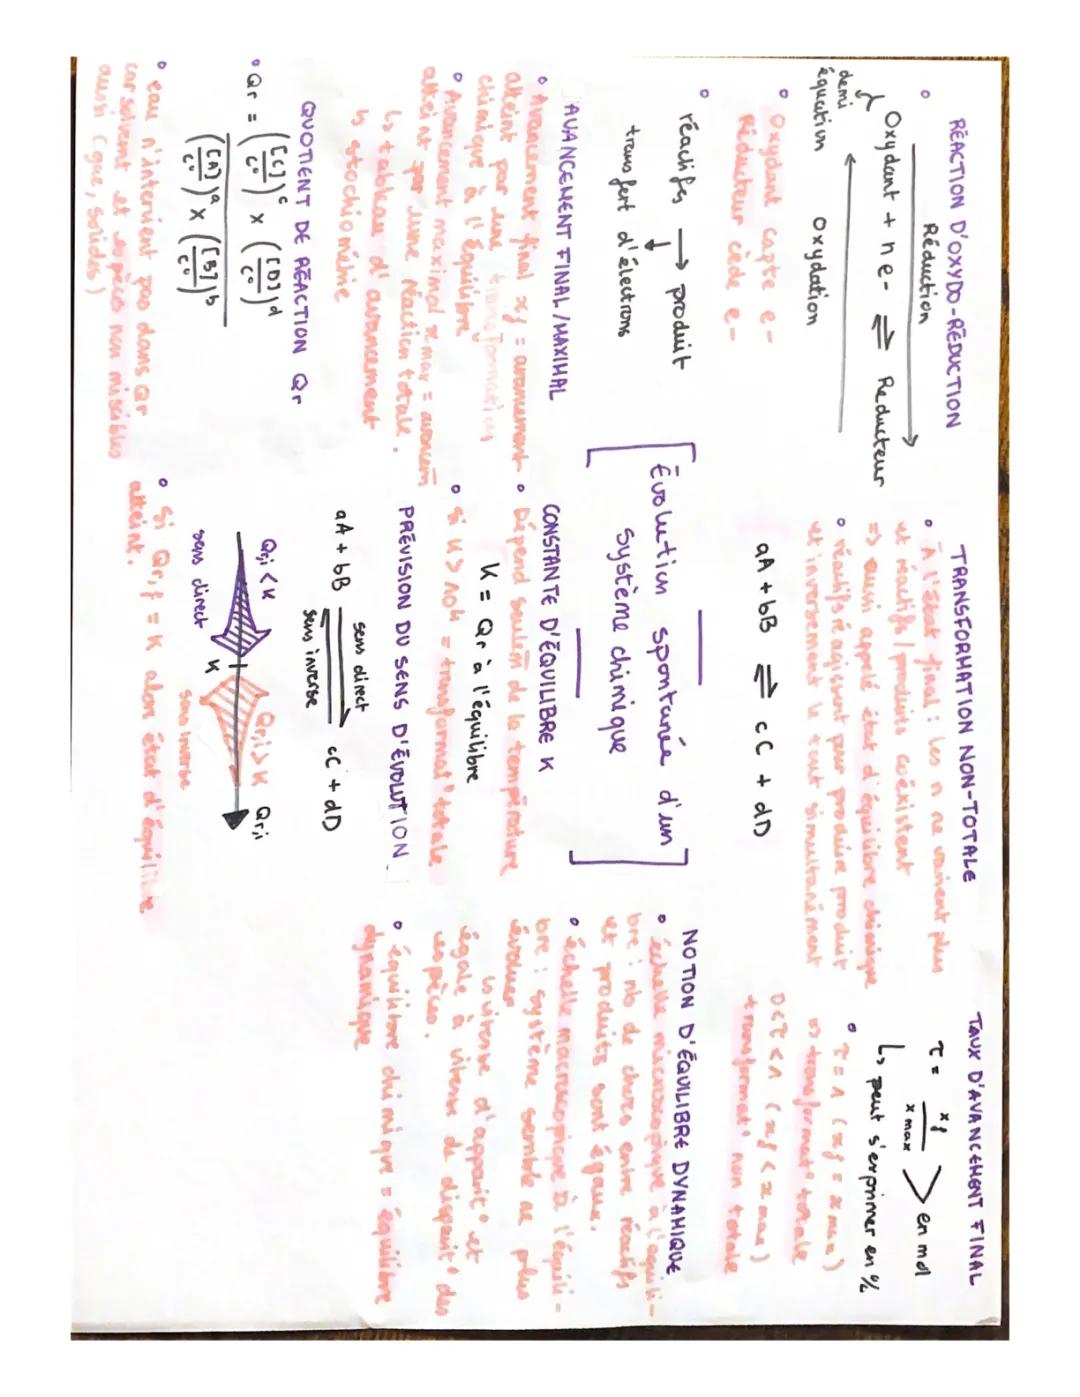 RÉACTION D'OXYDO-RÉDUCTION
Réduction
Oxydant + ne- ⇌ Reducteur
demi
équation
Oxydation
Oxydant capte e-
Réducteur cède e-
réactifs → produit
transfert d'électrons
AVANCEMENT FINAL/MAXIMAL
Avancement final xf = avancement
atteint par une transformation
chimique à l'équilibre
Avancement maximal xmax = avancem
atteint par une réaction totale.
↳ tableau d'avancement
↳ stochiométrie
QUOTIENT DE RÉACTION Qr
Qr = ([C]/c°)^c × ([D]/c°)^d
([A]/c°)^a × ([B]/c°)^b
eau n'intervient pas dans Qr
car solvant et espèces non miscibles
aussi (gaz, solides)
TRANSFORMATION NON-TOTALE
À l'état final : les n ne varient plus
et réactifs/produits coexistent
=> aussi appelé état d'équilibre chimique
réactifs réagissent pour produire produit
et inversement le tout simultanément
aA + bB ⇌ cC + dD
Évolution spontanée d'un
système chimique
CONSTANTE D'ÉQUILIBRE K
Dépend seulem de la température
K = Qr à l'équilibre
si K > 10⁴ = transformat° totale
PRÉVISION DU SENS D'ÉVOLUTION
sens direct
aA + bB ⇌ cC + dD
sens inverse
Qr,i < K
Qr,i > K
Qr,i
K
sens direct
sens inverse
Si Qr,f = K alors état d'équilibre
atteint.
TAUX D'AVANCEMENT FINAL
τ = xf / xmax > en mol
↳ peut s'exprimer en %
τ = 1 (xf = xmax)
=> transformat° totale
0<τ<1 (xf < xmax)
transformat° non totale
NOTION D'ÉQUILIBRE DYNAMIQUE
échelle microscopique à l'équili-
bre : nb de chocs entre réactifs
et produits sont égaux.
échelle macroscopique à l'équili-
bre : système semble ne plus
évoluer
↳ vitesse d'apparit° et
égale à vitesse de disparit° des
espèces.
équilibre chimique = équilibre
dynamique